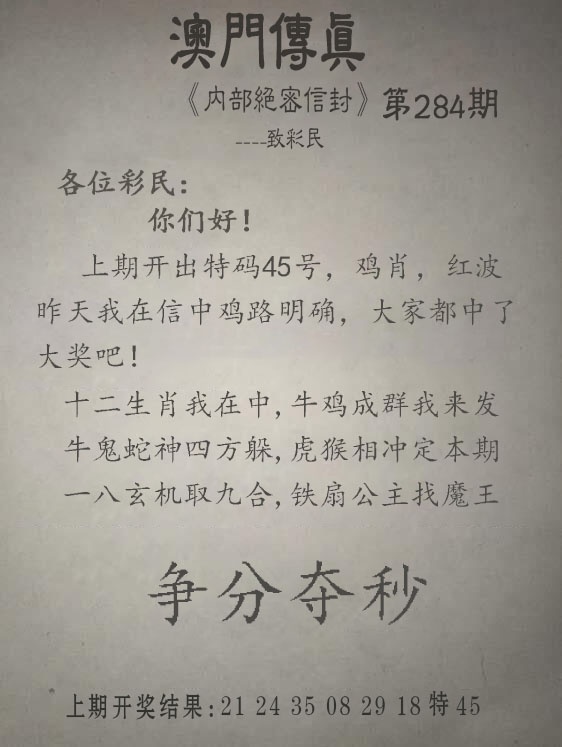 澳門傳眞
《内部絕密信封》第284期
----致彩民
各位彩民：
你们好！
上期开出特码45号，鸡肖，红波
昨天我在信中鸡路明确，大家都中了
大奖吧！
十二生肖我在中,牛鸡成群我来发
牛鬼蛇神四方躲,虎猴相冲定本期
一八玄机取九合,铁扇公主找魔王
争分夺秒
上期开奖结果:21 24 35 08 29 18特45